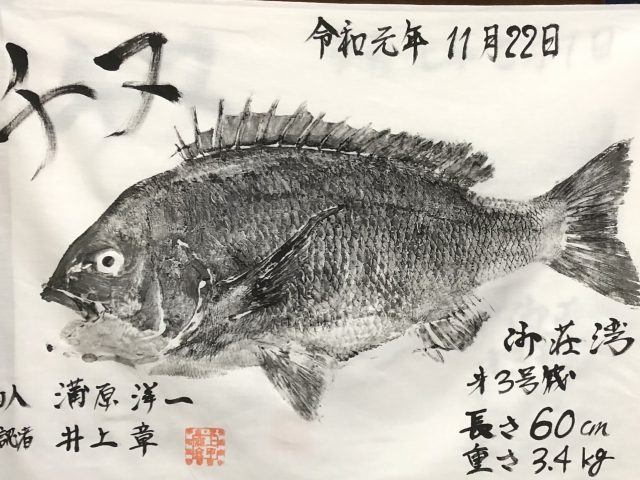 令和元年 11月22日
チヌ
御荘湾
才3号筏
長さ60cm
重さ3.4kg
人 蒲原洋一
認者 井上章